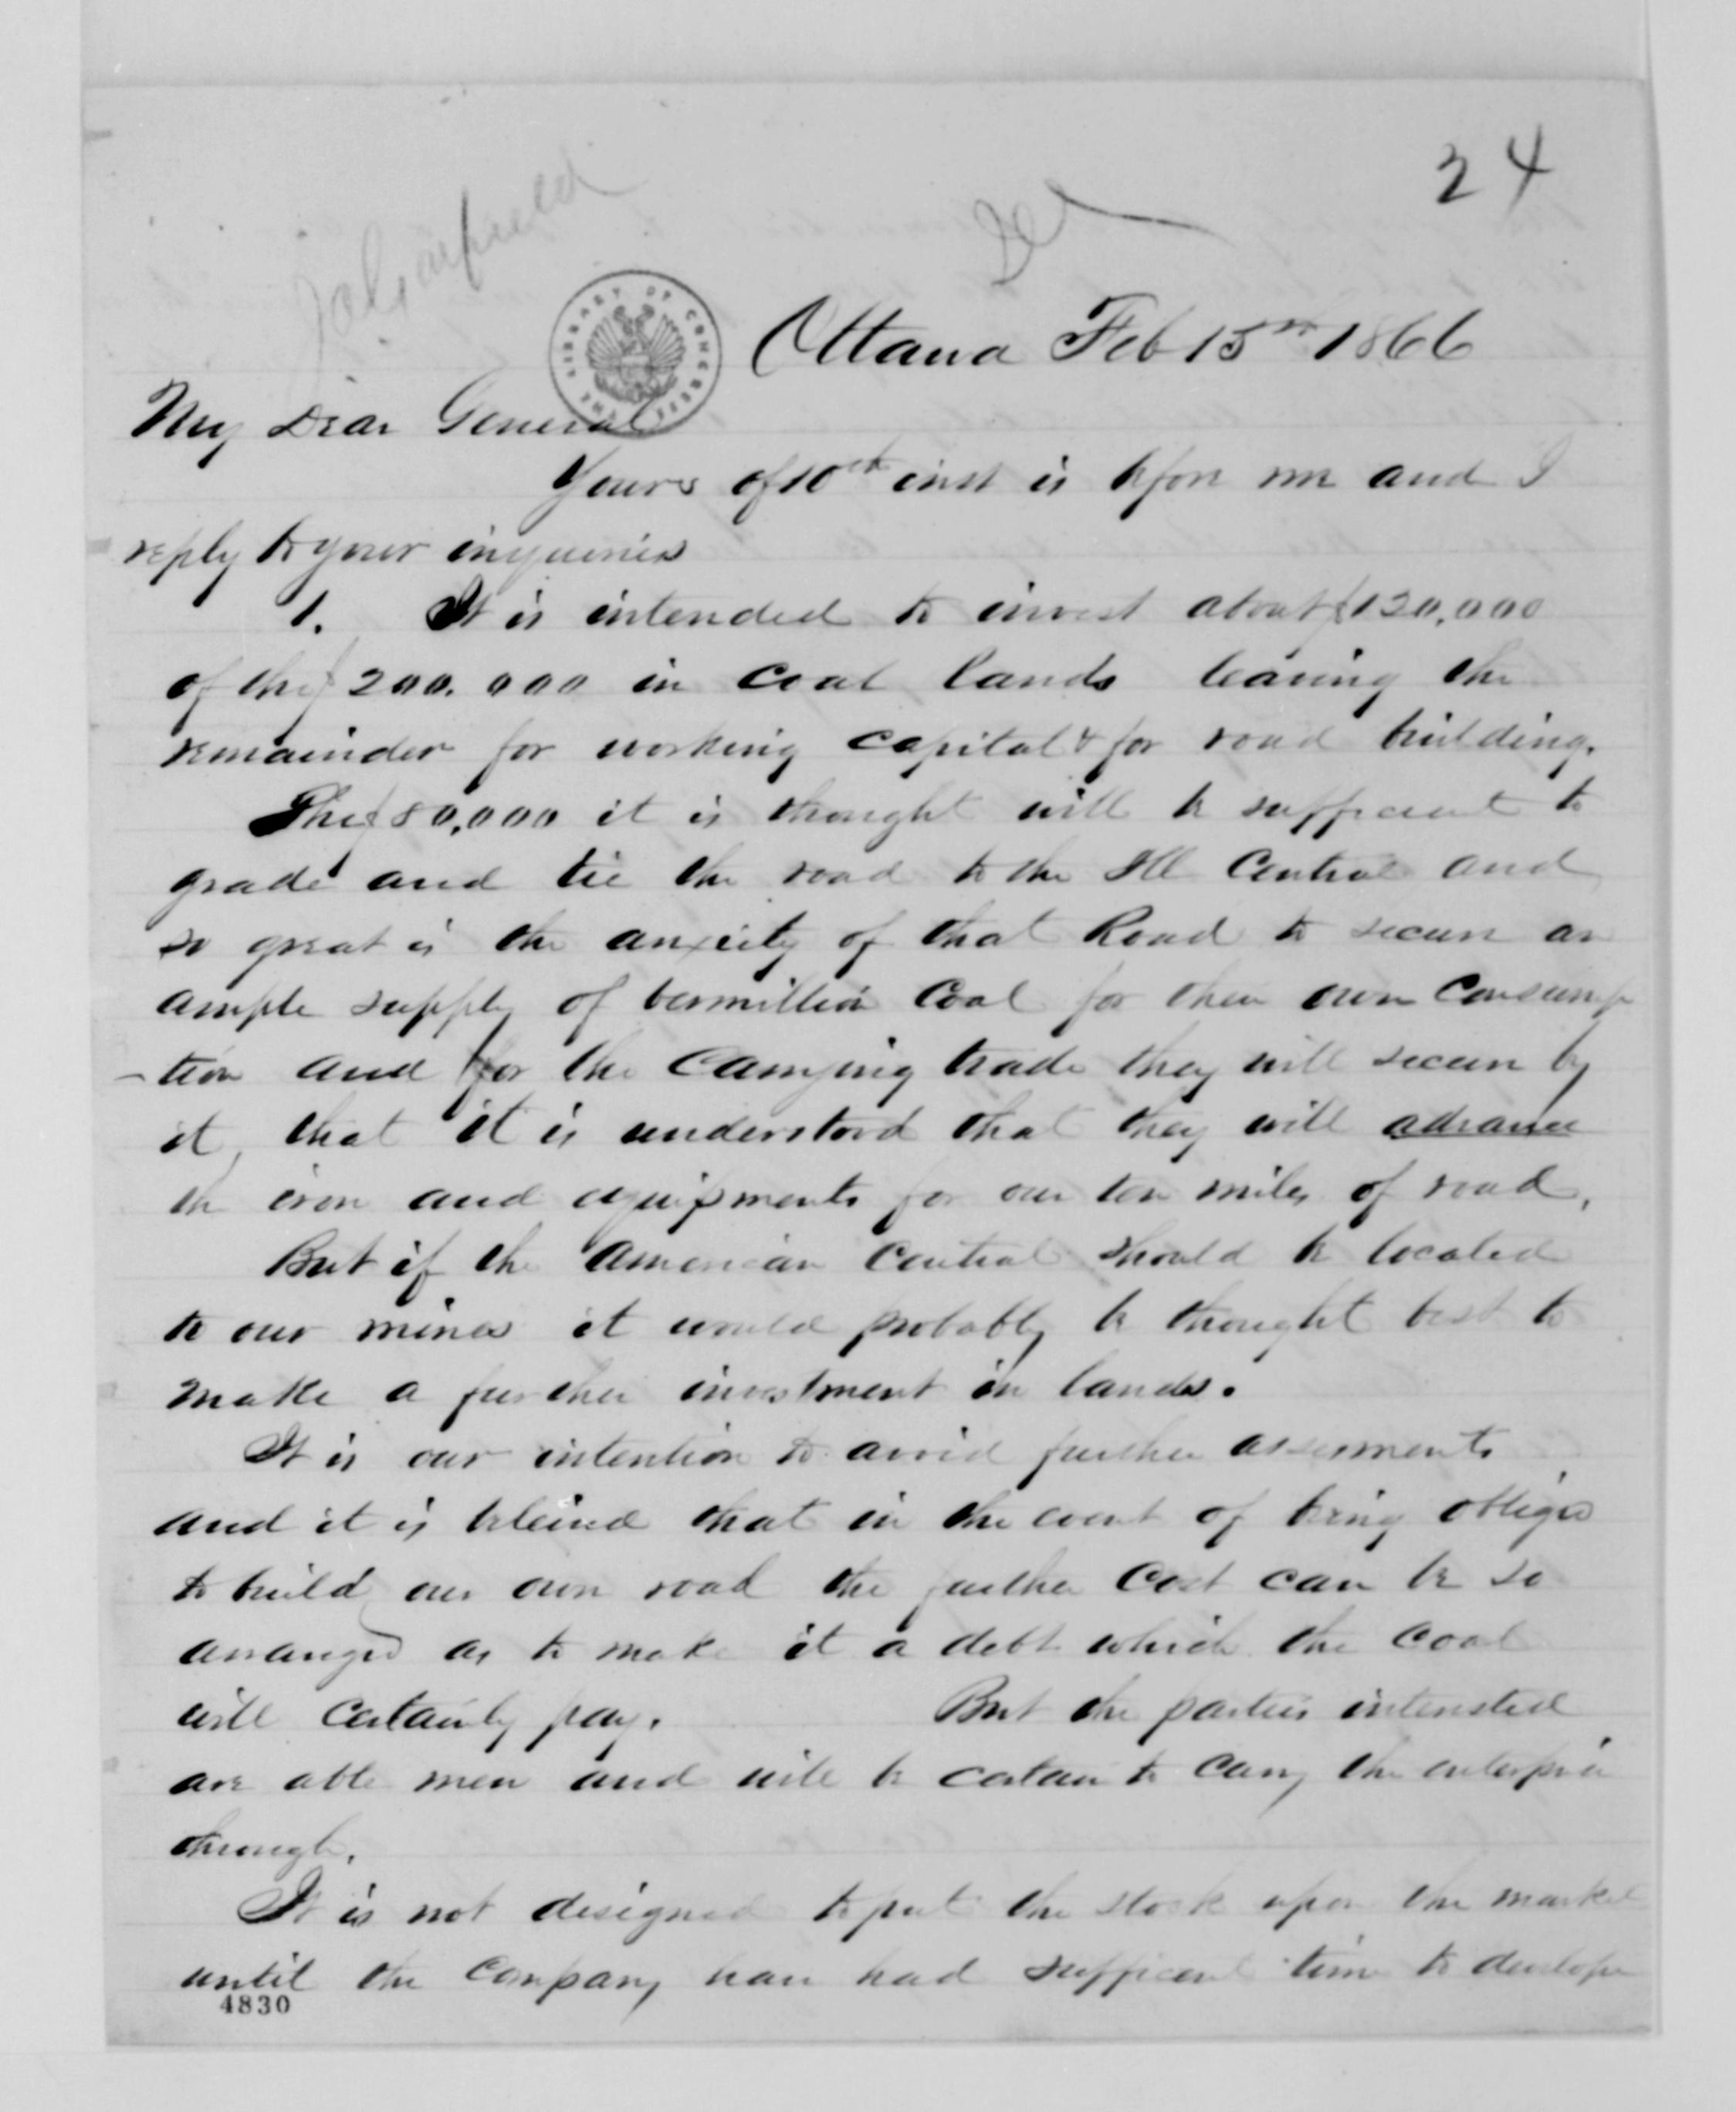 24
JA Garfield
Ottawa Feb 15th 1866
THE LIBRARY OF CONGRESS
My Dear General
Yours of 10th inst is before me and I
reply to your inquiries
1. It is intended to invest about $120,000
of the $200.000 in Coal lands leaving the
remainder for working capital & for road building.
The $80,000 it is thought will be sufficient to
grade and tie the road to the Ill Central and
so great is the anxiety of that Road to secure an
ample supply of vermillion Coal for their own Consump
-tion and for the Carrying trade they will secure by
it, that it is understood that they will advance
the iron and equipments for our ten miles of road.
But if the American Central should be located
to our mines it would probably be thought best to
make a further investment in lands.
It is our intention to avoid further assesments
and it is beleived that in the event of being obliged
to build our own road the further Cost can be so
arranged as to make it a debt which the Coal
will certainly pay. But the parties interested
are able men and will be certain to carry the enterprise
through.
It is not designed to put the stock upon the market
until the Company have had sufficient time to develope
4830